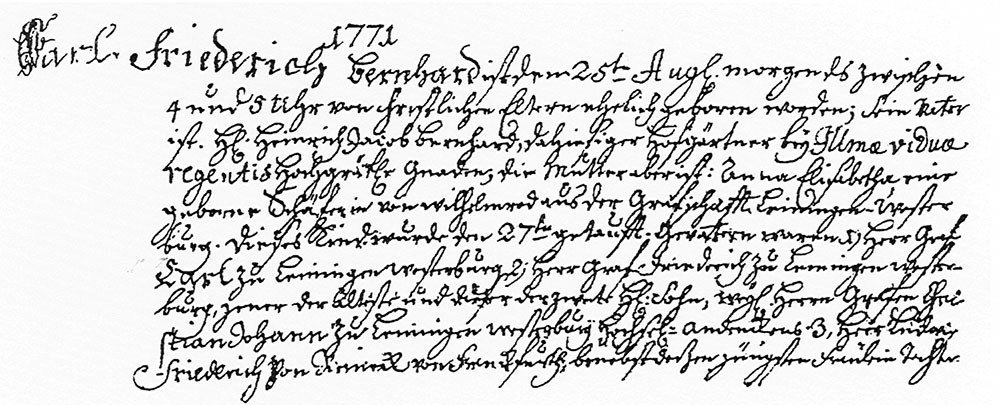 1771
Carl Friederich Bernhard ist den 25ten Augl. morgends zwischen
4 und 5 Uhr von christlichen Eltern ehelich geboren worden; sein Vater
ist. Hl. Heinrich Jacob Bernhard, dahiesiger Hofgärtner bey Illmæ viduæ
regentis Hochgräfl. Gnaden, die Mutter aber ist: Anna Elisabetha eine
geborne Schäferin von Wilhelmrod aus der Grafschafft Leiningen-Wester
burg. Dieses Kind wurde den 27ten getaufft. Gevattern waren 1) Herr Graf
Carl zu Leiningen Westerburg 2) Herr Graf Friederich zu Leiningen Wester-
burg, jener der älteste und dieser der zweite Hl. Sohn, wegl. Herren Grafen Chri
stian Johann zu Leiningen Westerburg Hochsel: Andenckens 3, Herr Ludwig
Friedrich von von Franckfurth, benebst dessen jüngsten Fräulein Tochter.